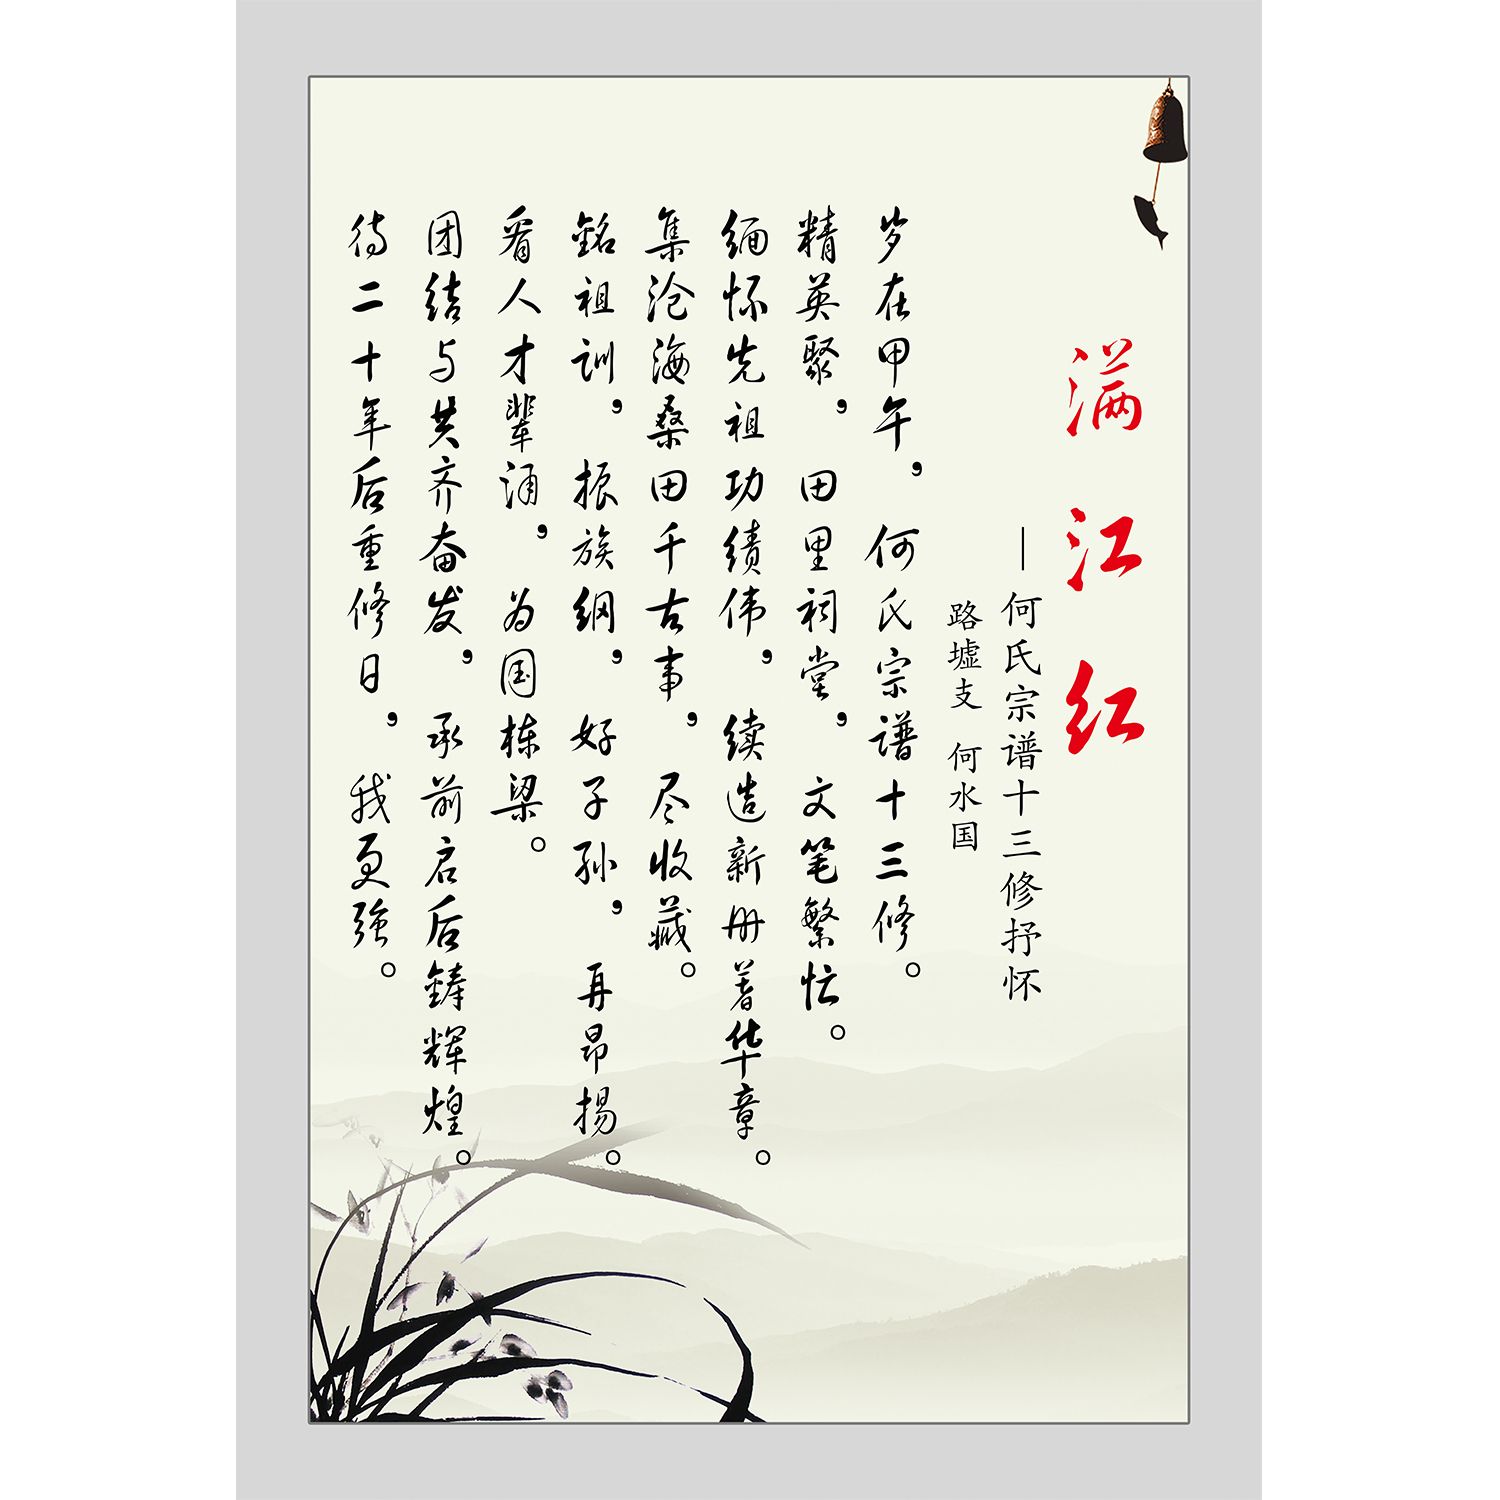 满江红
—何氏宗谱十三修抒怀
路墟支 何水国
岁在甲午，何氏宗谱十三修。
精英聚，田里祠堂，文笔繁忙。
缅怀先祖功绩伟，续造新册著华章。
集沧海桑田千古事，尽收藏。
铭祖训，振族纲，好子孙，再昂扬。
看人才辈涌，为国栋梁。
团结与共齐奋发，承前启后铸辉煌。
待二十年后重修日，我更强。